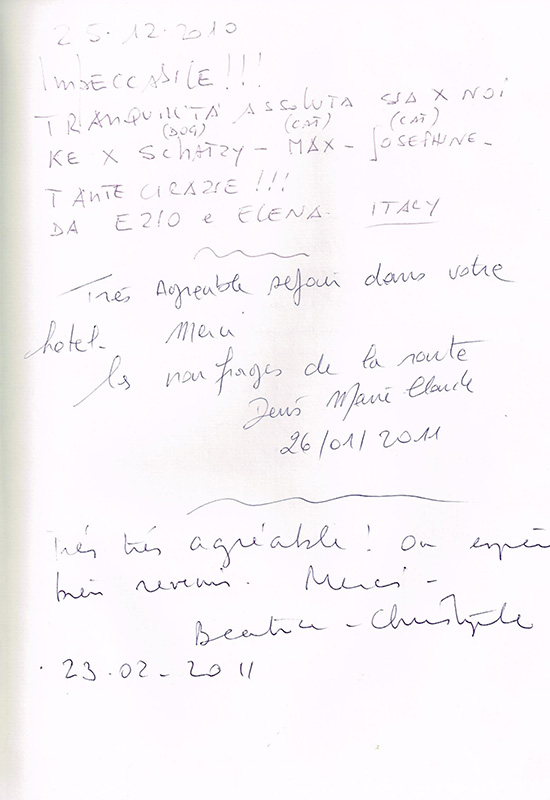 25.12.2010
IMPECCABILE!!!
TRANQUILITÀ ASSOLUTA SIA X NOI
(DOG) (CAT) (CAT)
KE X SCHATZY - MAX - JOSEPHINE -
TANTE GRAZIE!!!
DA EZIO e ELENA. ITALY
Très Agréable séjour dans votre
hotel - Merci
les naufrages de la route
Denis Marie Claude
26/01/2011
très très agréable! On espère
bien revenir. Merci -
Beatrice - Christophe
23.02-2011